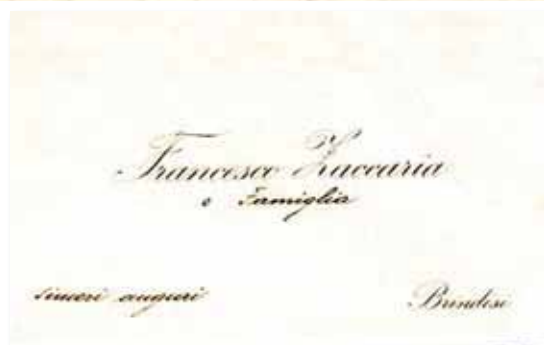 Francesco Zaccaria
e Famiglia
sinceri auguri
Brindisi